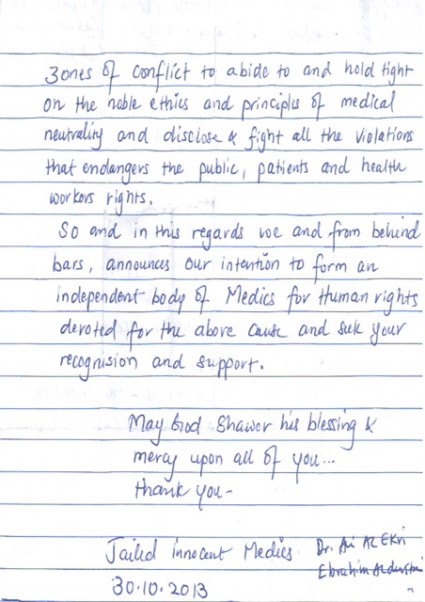 Zones of conflict to abide to and hold tight
on the noble ethics and principles of medical
neutrality and disclose & fight all the violations
that endangers the public, patients and health
workers rights.
So and in this regards we and from behind
bars, announces our intention to form an
independent body of Medics for Human rights
devoted for the above cause and seek your
recognision and support.
May God Shawor his blessing &
mercy upon all of you...
thank you-
Jailed innocent Medics
Dr. Ali Al Ekri
Ebrahim
30.10.2013